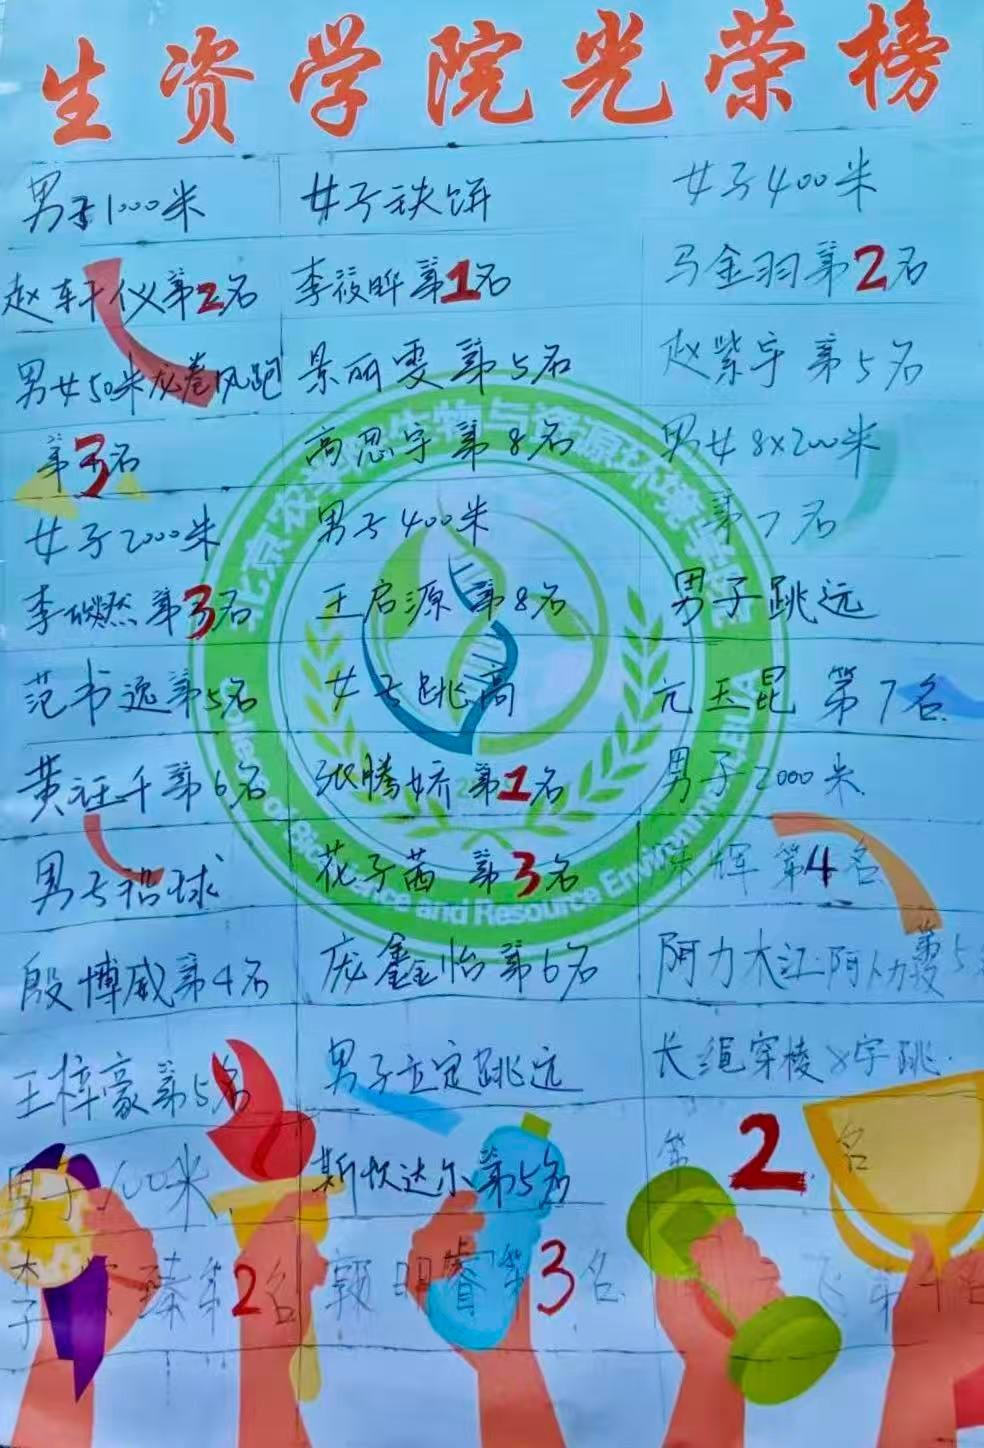 生资学院光荣榜
男子1000米
赵轩仪第2名
男女50米龙卷风跑
第3名
女子2000米
李燃第3名
范书逸第5名
黄千第6名
男子铅球
殷博威第4名
王梓豪第5名
男子100米
李臻第2名
女子铁饼
李筱晔第1名
景丽雯第5名
高思宇第8名
男子400米
王启源第8名
女子跳高
张腾娇第1名
花子茜第3名
庞鑫怡第6名
男子立定跳远
斯坎达尔第5名
明睿第3名
女子400米
马金羽第2名
赵紫宇第5名
男女8x200米
第7名
男子跳远
亢玉昆第7名
男子2000米
陈辉第4名
阿力木江·阿卜力 第5
长绳穿梭8字跳
第2名
飞 第 名
北京农学院生物与资源环境学院
and Resource Environment